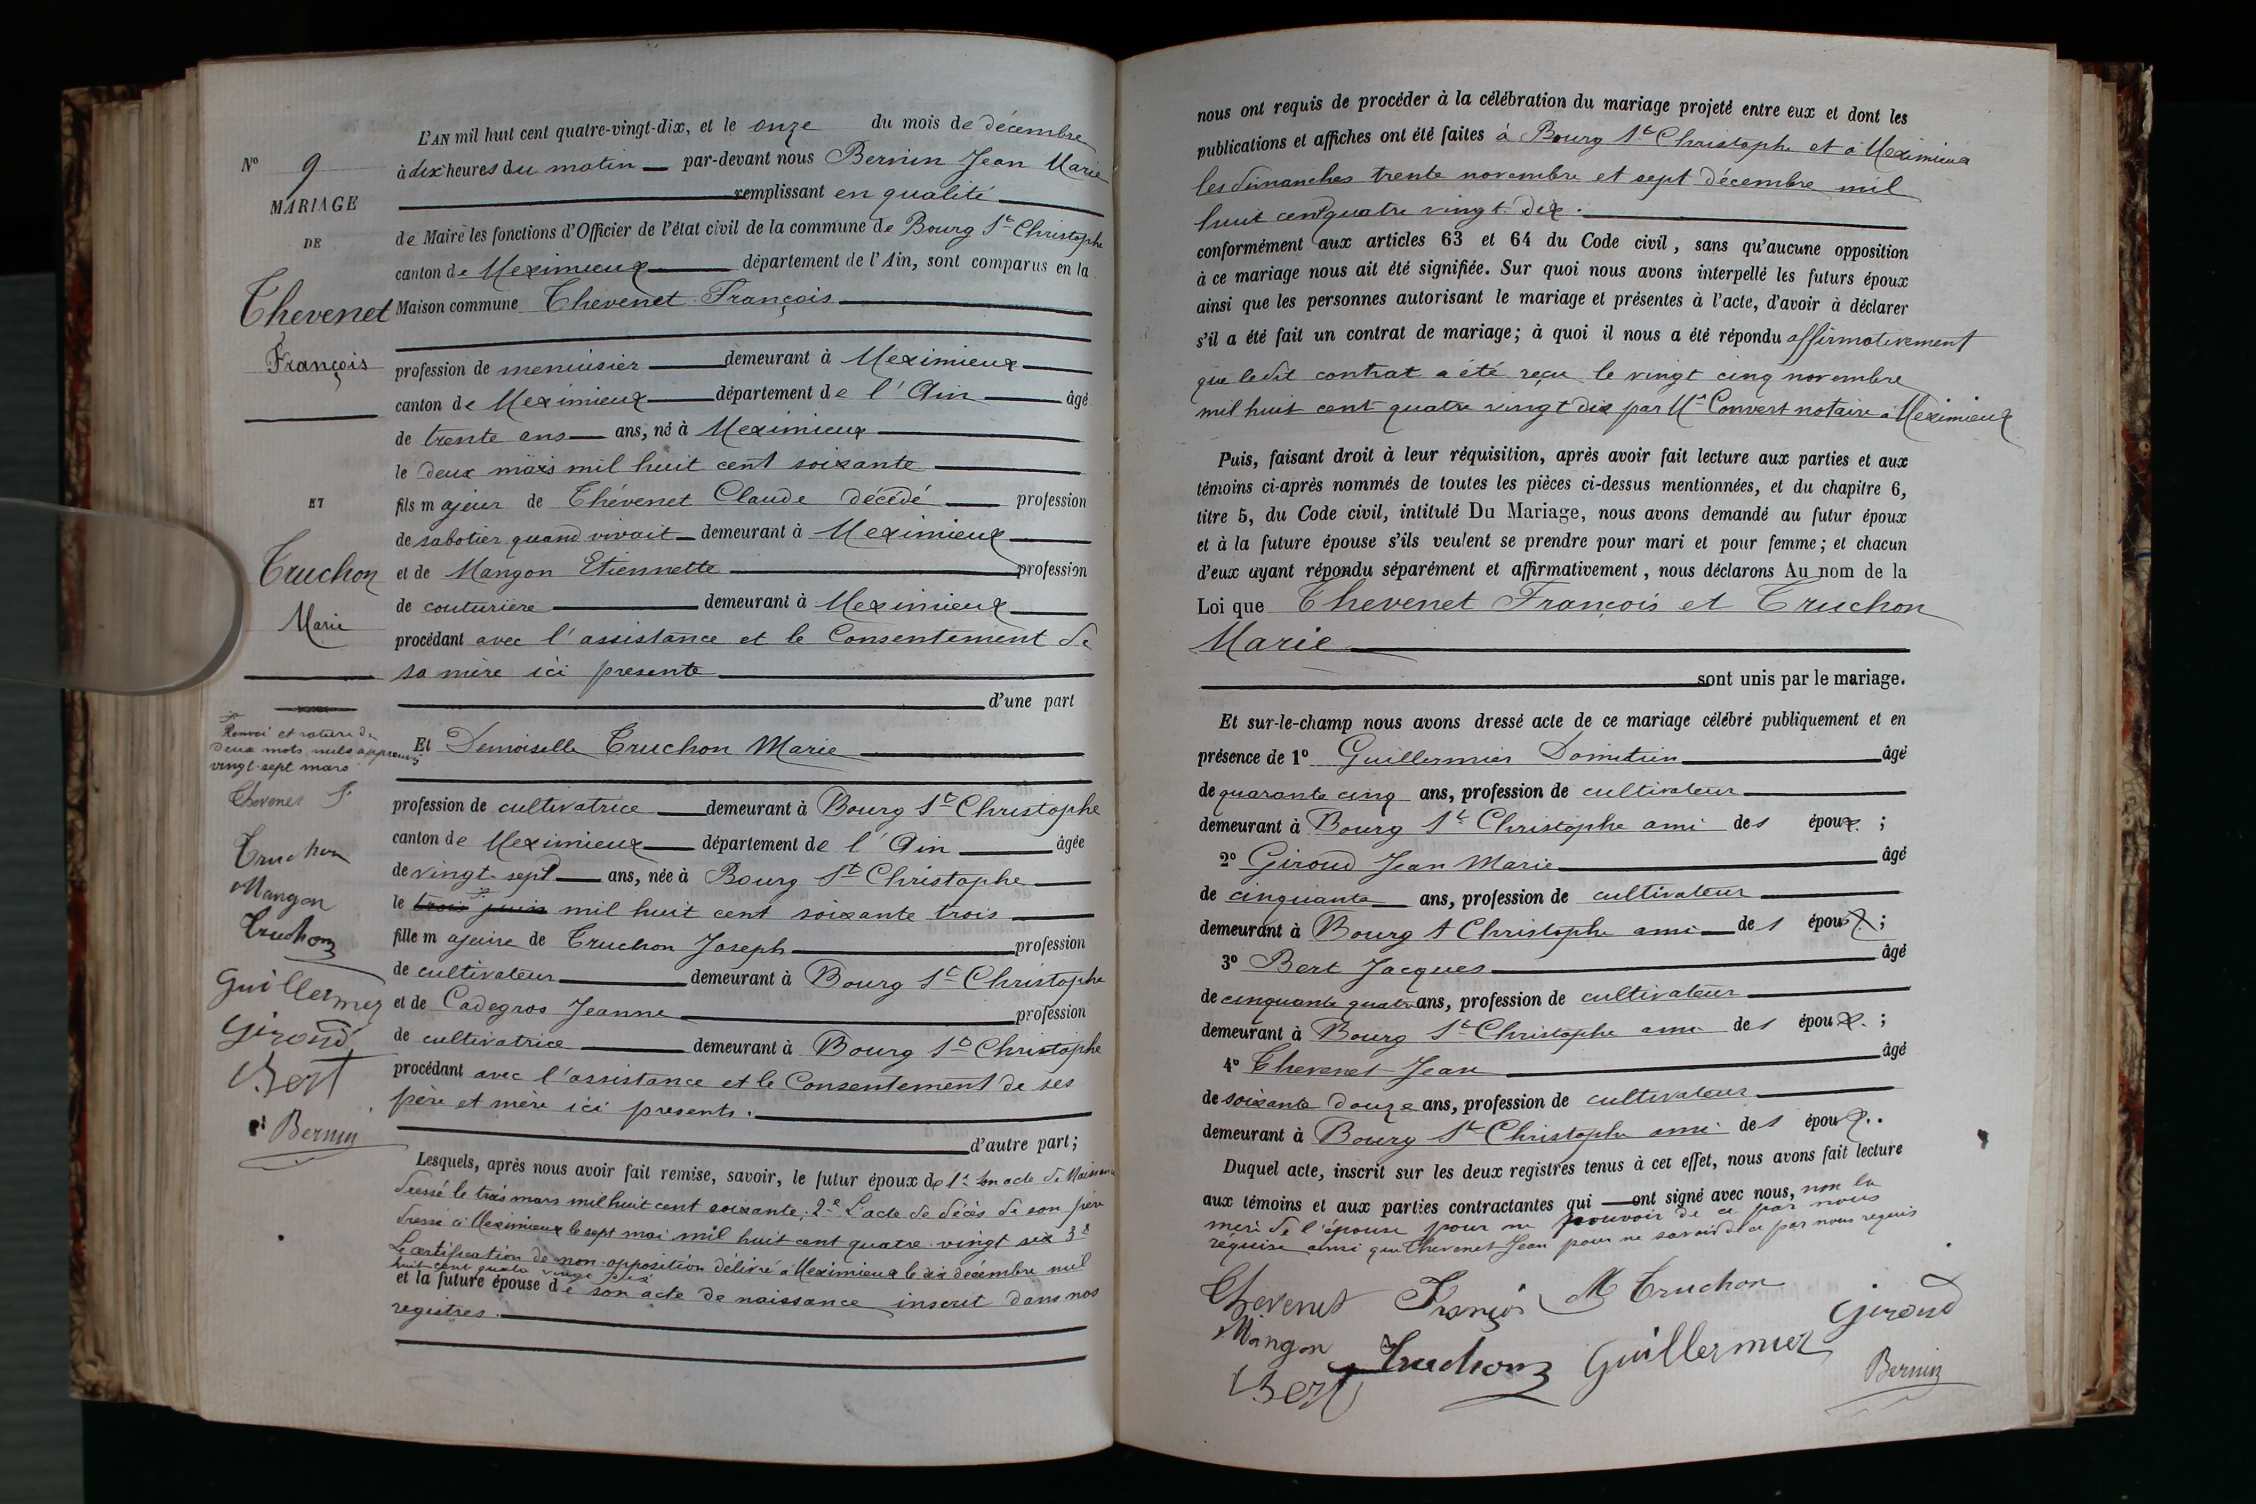 N° 9
MARIAGE
DE
Thevenet
François
ET
Truchon
Marie
Renvoi et rature de
deux mots nuls approuvés
vingt-sept mars
Thevenet F.
Truchon
Mangon
Truchon
Guillermier
Giroud
Bert
Bernin
L'AN mil huit cent quatre-vingt-dix, et le onze du mois de décembre
à dix heures du matin par-devant nous Bernin Jean Marie
remplissant en qualité
de Maire les fonctions d'Officier de l'état civil de la commune de Bourg St Christophe
canton de Meximieux département de l'Ain, sont comparus en la
Maison commune Thevenet François
profession de menuisier demeurant à Meximieux
canton de Meximieux département de l'Ain âgé
de trente ans ans, né à Meximieux
le deux mars mil huit cent soixante
fils majeur de Thévenet Claude décédé profession
de sabotier quand vivait demeurant à Meximieux
et de Mangon Etiennette profession
de couturière demeurant à Meximieux
procédant avec l'assistance et le Consentement de
sa mère ici presente
d'une part
Et Demoiselle Truchon Marie
profession de cultivatrice demeurant à Bourg St Christophe
canton de Meximieux département de l'Ain âgée
de vingt-sept ans, née à Bourg St Christophe
le trois juin mil huit cent soixante trois
fille majeure de Truchon Joseph profession
de cultivateur demeurant à Bourg St Christophe
et de Cadegros Jeanne profession
de cultivatrice demeurant à Bourg St Christophe
procédant avec l'assistance et le Consentement de ses
père et mère ici presents.
d'autre part;
Lesquels, après nous avoir fait remise, savoir, le futur époux de 1° son acte de Naissance
dressé le trois mars mil huit cent soixante; 2e L'acte de décès de son père
dressé à Meximieux le sept mai mil huit cent quatre-vingt six 3e
Le certification de non-opposition délivré à Meximieux le dix décembre mil
huit cent quatre vingt dix
et la future épouse de son acte de naissance inscrit dans nos
registres.
nous ont requis de procéder à la célébration du mariage projeté entre eux et dont les
publications et affiches ont été faites à Bourg St Christophe et à Meximieux
les dimanches trente novembre et sept décembre mil
huit cent quatre vingt dix.
conformément aux articles 63 et 64 du Code civil, sans qu'aucune opposition
à ce mariage nous ait été signifiée. Sur quoi nous avons interpellé les futurs époux
ainsi que les personnes autorisant le mariage et présentes à l'acte, d'avoir à déclarer
s'il a été fait un contrat de mariage; à quoi il nous a été répondu affirmativement
que ledit contrat a été reçu le vingt cinq novembre
mil huit cent quatre vingt dix par Me Convert notaire à Meximieux
Puis, faisant droit à leur réquisition, après avoir fait lecture aux parties et aux
témoins ci-après nommés de toutes les pièces ci-dessus mentionnées, et du chapitre 6,
titre 5, du Code civil, intitulé Du Mariage, nous avons demandé au futur époux
et à la future épouse s'ils veulent se prendre pour mari et pour femme; et chacun
d'eux ayant répondu séparément et affirmativement, nous déclarons Au nom de la
Loi que Thevenet François et Truchon
Marie
sont unis par le mariage.
Et sur-le-champ nous avons dressé acte de ce mariage célébré publiquement et en
présence de 1° Guillermier Domitien âgé
de quarante cinq ans, profession de cultivateur
demeurant à Bourg St Christophe ami des époux.;
2° Giroud Jean Marie âgé
de cinquante ans, profession de cultivateur
demeurant à Bourg St Christophe ami des époux.;
3° Bert Jacques âgé
de cinquante quatre ans, profession de cultivateur
demeurant à Bourg St Christophe ami des époux.;
4° Thevenet Jean âgé
de soixante douze ans, profession de cultivateur
demeurant à Bourg St Christophe ami des époux.
Duquel acte, inscrit sur les deux registres tenus à cet effet, nous avons fait lecture
aux témoins et aux parties contractantes qui ont signé avec nous, non la
mère de l'épouse pour ne pouvoir de ce par nous
réquise ainsi que Thevenet Jean pour ne savoir de ce par nous requis
Thevenet François M Truchon Giroud
Mangon Truchon Guillermier
Bert Bernin